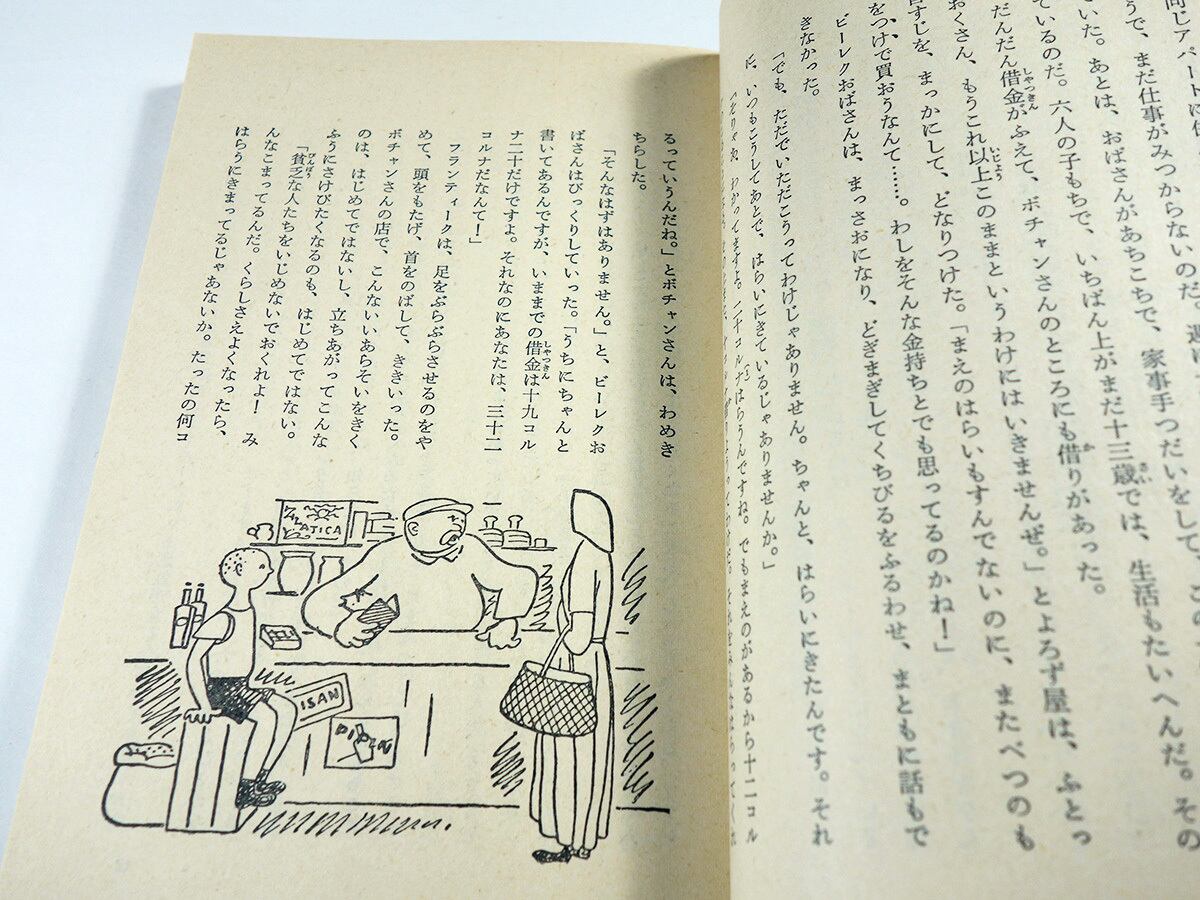 同じアパートに
うで、まだ仕事がみつからないのだ。
いた。あとは、おばさんがあちこちで、家事手つだいをして、この
ているのだ。六人の子もちで、いちばん上がまだ十三歳では、生活もたいへんだ。その
だんだん借金がふえて、ボチャンさんのところにも借りがあった。
おくさん、もうこれ以上このままというわけにはいきませんぜ。」とよろず屋は、ふとっ
首すじを、まっかにして、どなりつけた。「まえのはらいもすんでないのに、またべつのも
をつけで買おうなんて……。わしをそんな金持ちとでも思ってるのかね！」
ビーレクおばさんは、まっさおになり、どぎまぎしてくちびるをふるわせ、まともに話もで
きなかった。
「でも、ただでいただこうってわけじゃありません。ちゃんと、はらいにきたんです。それ
に、いつもこうしてあとで、はらいにきているじゃありませんか。」
「そりゃあ、わかってますよ。二十コルナはらうんですね。でもまえのがあるから十二コル
るっていうんだね。」とボチャンさんは、わめき
ちらした。
「そんなはずはありません。」と、ビーレクお
ばさんはびっくりしていった。「うちにちゃんと
書いてあるんですが、いままでの借金は十九コル
ナ二十だけですよ。それなのにあなたは、三十二
コルナだなんて！」
フランティークは、足をぶらぶらさせるのをや
めて、頭をもたげ、首をのばして、ききいった。
ボチャンさんの店で、こんないいあらそいをきく
のは、はじめてではないし、立ちあがってこんな
ふうにさけびたくなるのも、はじめてではない。
「貧乏な人たちをいじめないでおくれよ！　み
んなこまってるんだ。くらしさえよくなったら、
はらうにきまってるじゃあないか。たったの何コ
ZLATICA
ISAN